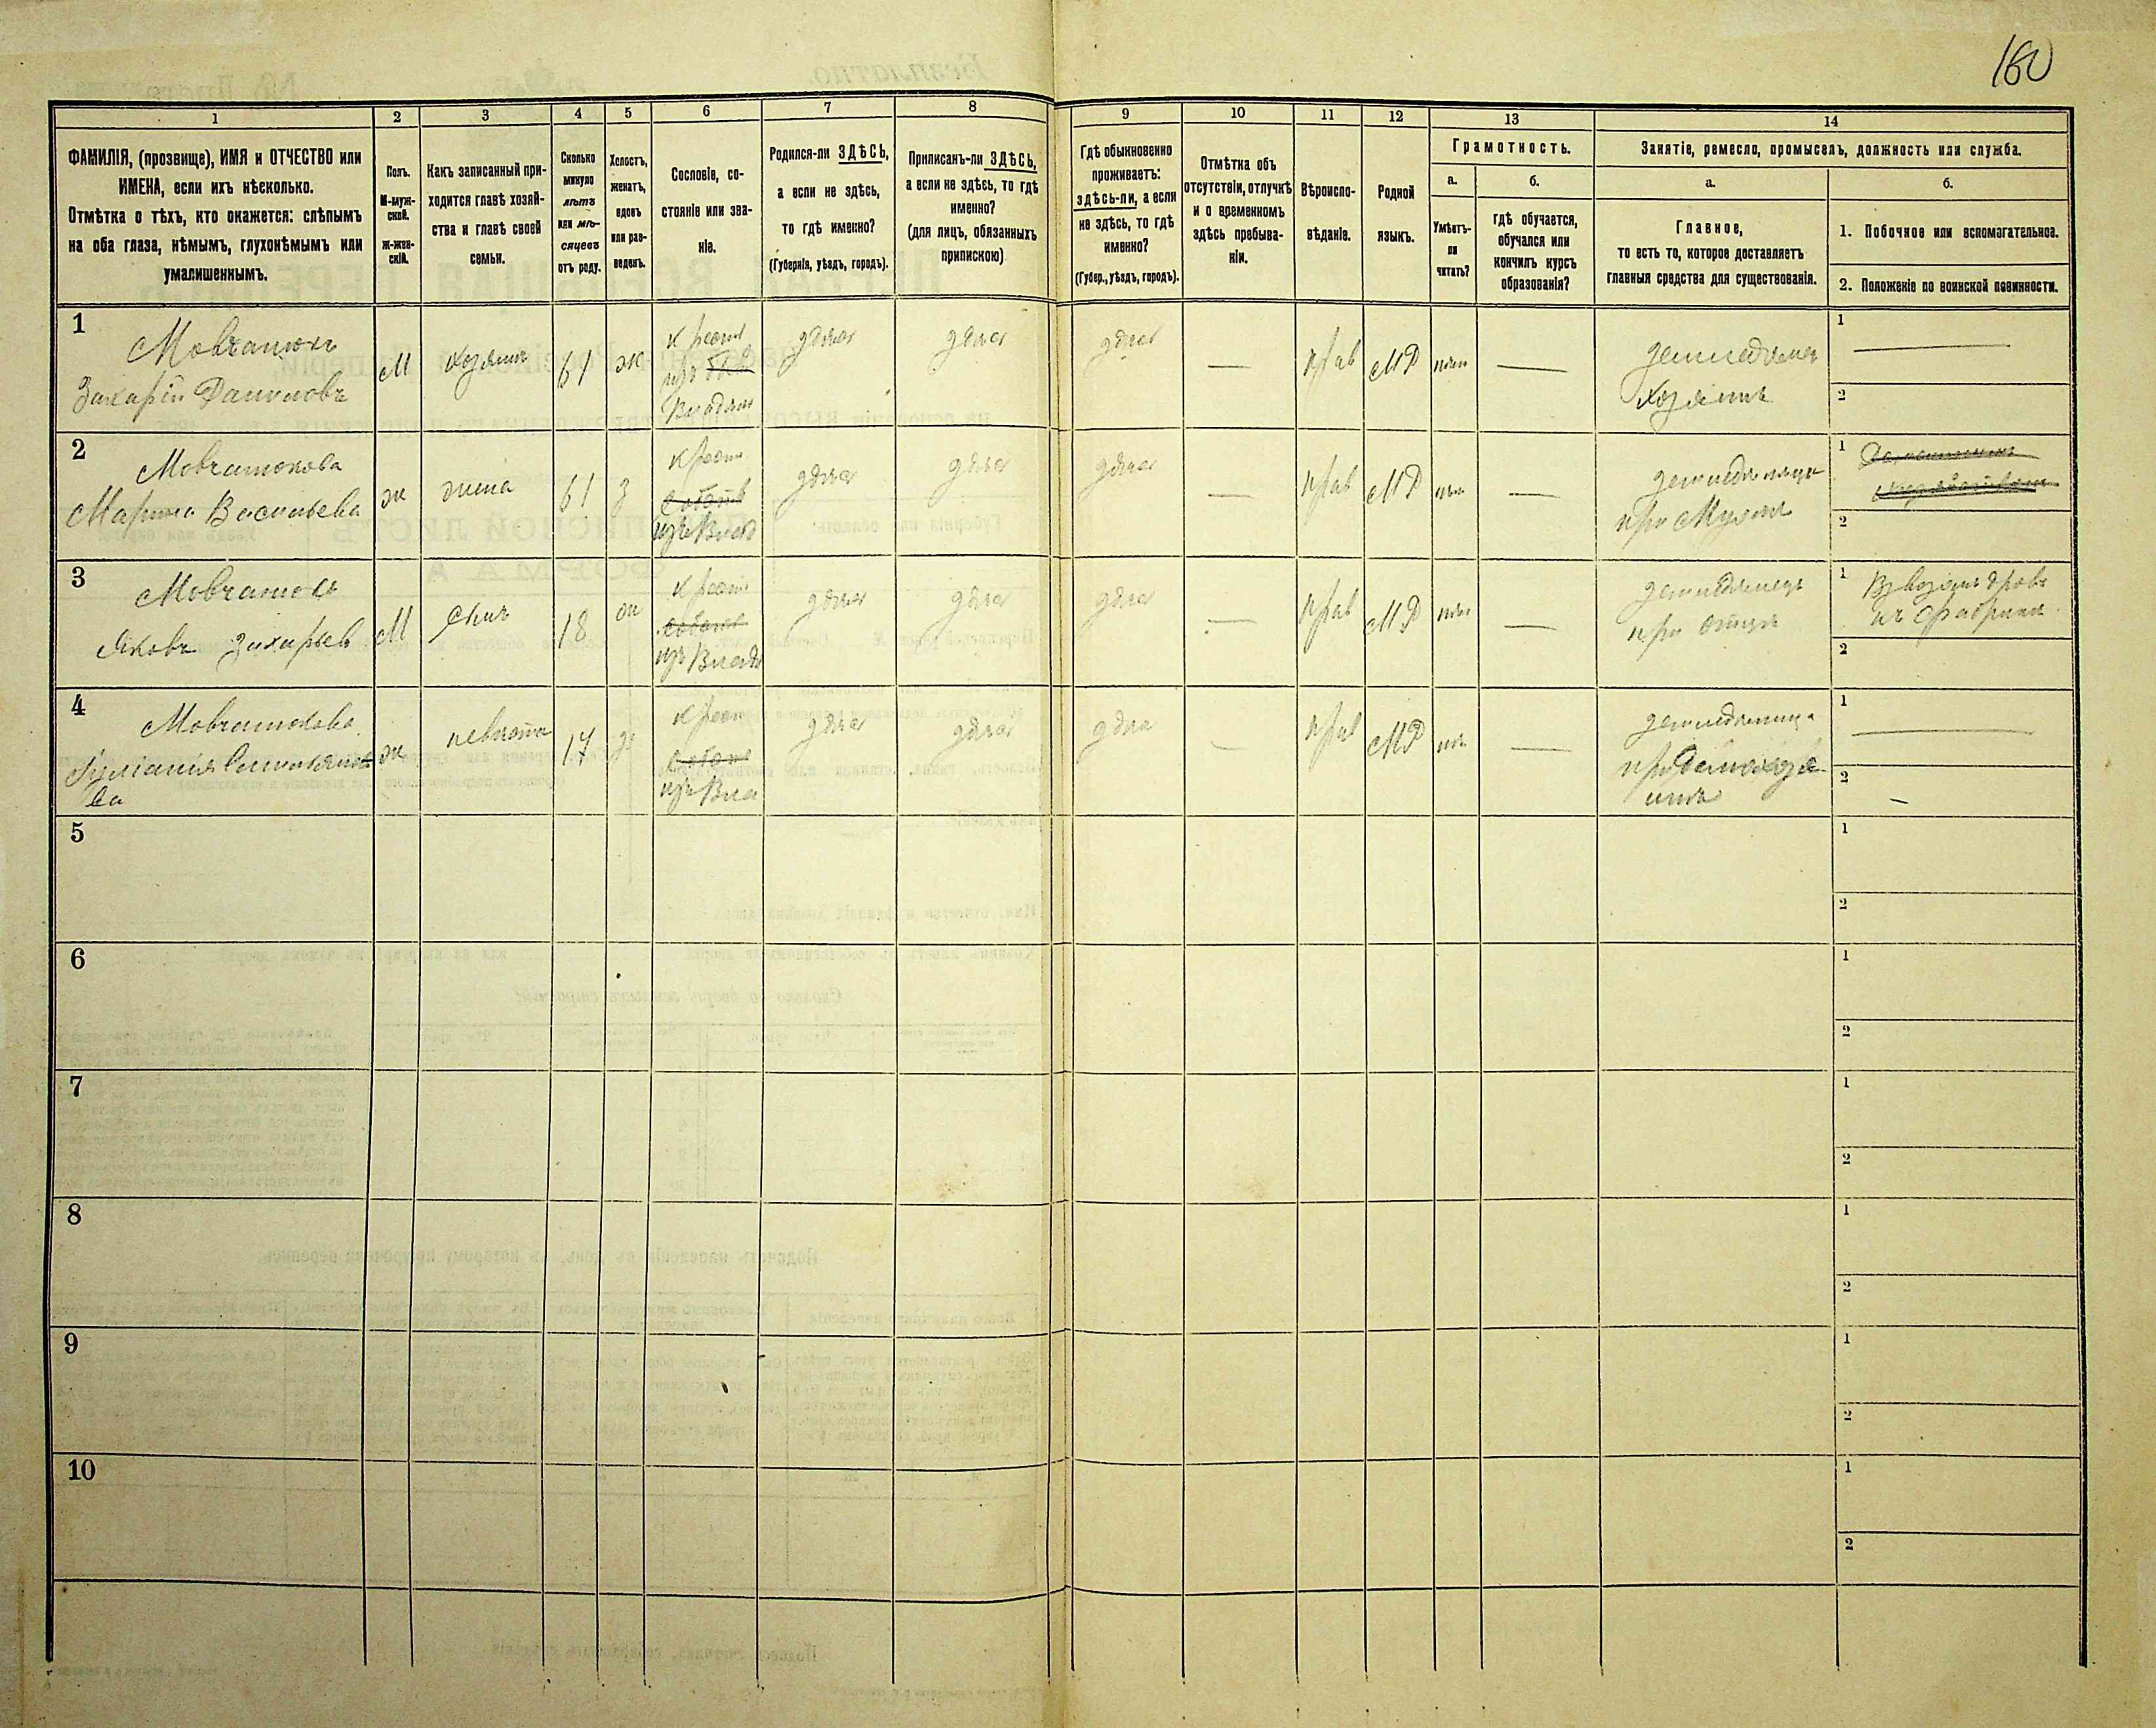 160
1
2
3
4
5
6
7
8
9
10
11
12
13
14
ФАМИЛІЯ, (прозвище), ИМЯ и ОТЧЕСТВО или
ИМЕНА, если ихъ нѣсколько.
Отмѣтка о тѣхъ, кто окажется: слѣпымъ
на оба глаза, нѣмымъ, глухонѣмымъ или
умалишеннымъ.
Полъ.
М-муж-
ской.
ж-жен-
скій.
Какъ записанный при-
ходится главѣ хозяй-
ства и главѣ своей
семьи.
Сколько
минуло
лѣтъ
или мѣ-
сяцевъ
отъ роду.
Холостъ,
женатъ,
вдовъ
или раз-
веденъ.
Сословіе, со-
стояніе или зва-
ніе.
Родился-ли ЗДѢСЬ,
а если не здѣсь,
то гдѣ именно?
(Губернія, уѣздъ, городъ).
Приписанъ-ли ЗДѢСЬ,
а если не здѣсь, то гдѣ
именно?
(для лицъ, обязанныхъ
припискою)
Гдѣ обыкновенно
проживаетъ:
здѣсь-ли, а если
не здѣсь, то гдѣ
именно?
(Губер., уѣздъ, городъ).
Отмѣтка объ
отсутствіи, отлучкѣ
и о временномъ
здѣсь пребыва-
ніи.
Вѣроиспо-
вѣданіе.
Родной
языкъ.
Грамотность.
а.
Умѣетъ-
ли
читать?
б.
гдѣ обучается,
обучался или
кончилъ курсъ
образованія?
Занятіе, ремесло, промыселъ, должность или служба.
а.
Главное,
то есть то, которое доставляетъ
главныя средства для существованія.
б.
1. Побочное или вспомагательное.
2. Положеніе по воинской повинности.
1
Мовчанюкъ
Захарій Даниловъ
М
хозяинъ
61
ж
крест
изъ
Владѣл
здѣсь
здѣсь
здѣсь
—
прав
МР
нѣтъ
—
земледѣлецъ
хозяинъ
1
—
2
2
Мовчанюкова
Марина Васильева
ж
жена
61
з
крест
изъ Влад
здѣсь
здѣсь
здѣсь
—
прав
МР
нѣтъ
—
земледѣлица
при мужѣ
1
2
3
Мовчанюкъ
Яковъ Захарьев
М
сынъ
18
ж
крест
изъ Владѣ
здѣсь
здѣсь
здѣсь
—
прав
МР
нѣтъ
—
земледѣлецъ
при отцѣ
1
дровъ
2
4
Мовчанюкова
Іуліанія
ва
ж
невѣстка
17
з
крест
изъ Вла
здѣсь
здѣсь
здѣсь
—
прав
МР
нѣтъ
—
земледѣлица
при домохозя
инѣ
1
—
2
—
5
1
2
6
1
2
7
1
2
8
1
2
9
1
2
10
1
2